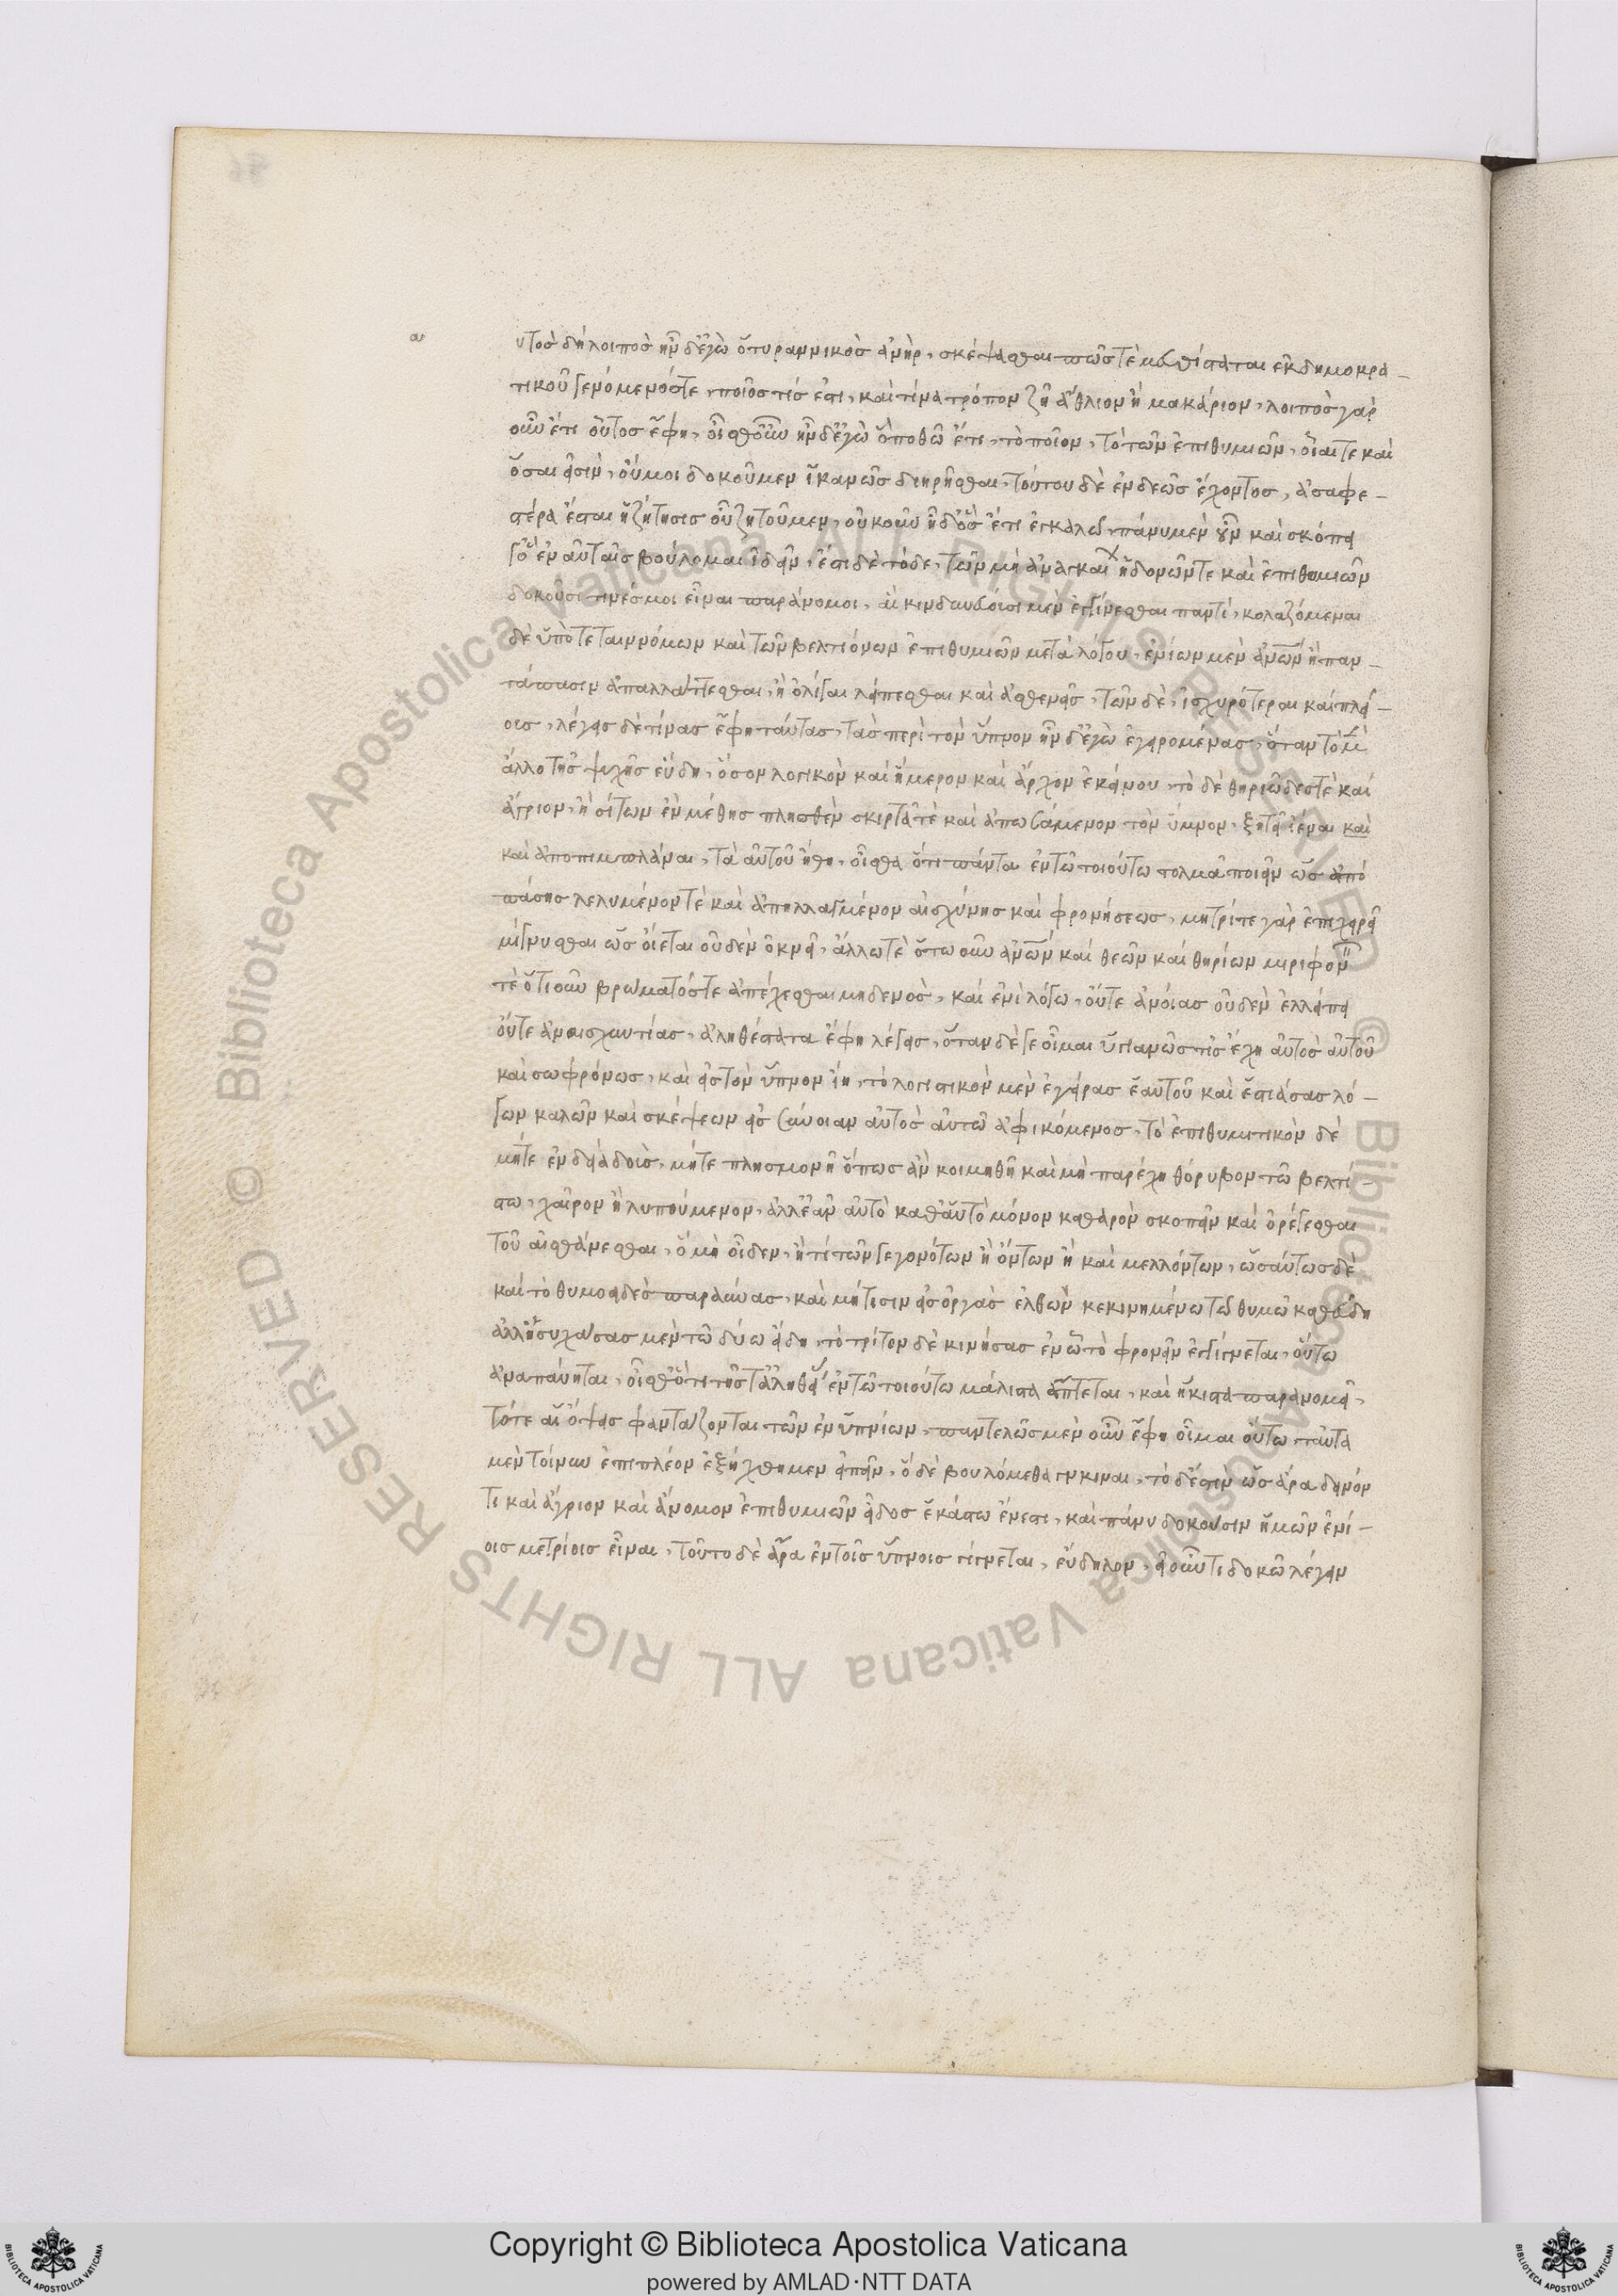 α
υτὸς δὴ λοιπὸς ἦν δ' ἐγὼ ὁ τυραννικὸς ἀνὴρ, σκέψασθαι πῶς τὲ μεθίσταται ἐκ δημοκρα-
τικοῦ γενόμενός τε, ποῖός τίς ἐστι, καὶ τίνα τρόπον ζῆ ἄθλιον ἢ μακάριον, λοιπὸς γὰρ
οὖν ἔτι οὗτος ἔφη, οἶσθ' οὖν ἦν δ' ἐγὼ ὃ ποθῶ ἔτι, τὸ ποῖον, τὸ τῶν ἐπιθυμιῶν, οἷαί τε καὶ
ὅσαι εἰσὶν, οὔ μοι δοκοῦμεν ἱκανῶς διηρῆσθαι, τούτου δὲ ἐνδεῶς ἔχοντος, ἀσαφε-
στέρα ἔσται ἡ ζήτησις οὗ ζητοῦμεν, οὐκοῦν ἦ δ' ὃς ἔτι ἐν καλῶ, πάνυ μὲν οὖν καὶ σκόπει
γ' ὃ ἐν αὐταῖς βούλομαι ἰδεῖν, ἔστι δὲ τόδε, τῶν μὴ ἀναγκαίων ἡδονῶν τε καὶ ἐπιθυμιῶν
δοκοῦσί τινές μοι εἶναι παράνομοι, αἳ κινδυνεύουσι μὲν ἐγγίνεσθαι παντί, κολαζόμεναι
δὲ ὑπό τε τῶν νόμων καὶ τῶν βελτιόνων ἐπιθυμιῶν μετὰ λόγου, ἐνίων μὲν ἀνων ἢ παν-
τάπασιν ἀπαλλάττεσθαι, ἢ ὀλίγαι λείπεσθαι καὶ ἀσθενεῖς, τῶν δὲ, ἰσχυρότεραι καὶ πλεί-
ους, λέγεις δὲ τίνας ἔφη ταύτας, τὰς περὶ τὸν ὕπνον ἦν δ' ἐγὼ ἐγειρομένας, ὅταν τὸ μὲν
ἄλλο τῆς ψυχῆς εὕδη, ὅσον λογικὸν καὶ ἥμερον καὶ ἄρχον ἐκείνου, τὸ δὲ θηριῶδές τὲ καὶ
ἄγριον, ἢ σίτων ἢ μέθης πλησθὲν σκιρτᾶ τὲ καὶ ἀπωσάμενον τὸν ὕπνον, ζητῆ ἰέναι καὶ
καὶ ἀποπιμπλάναι, τὰ αὑτοῦ ἤθη, οἶσθα ὅτι πάντα ἐν τῶ τοιούτω τολμᾶ ποιεῖν ὡς ἀπὸ
πάσης λελυμένον τὲ καὶ ἀπηλλαγμένον αἰσχύνης καὶ φρονήσεως, μητρί τε γὰρ ἐπιχειρεῖ
μίγνυσθαι ὡς οἴεται οὐδὲν ὀκνεῖ, ἄλλω τὲ ὅτω οὖν ἀνων καὶ θεῶν καὶ θηρίων μιαιφονεῖν
τὲ ὁτιοῦν βρώματός τε ἀπέχεσθαι μηδενὸς, καὶ ἑνὶ λόγω, οὔτε ἀνοίας οὐδὲν ἐλλείπει
οὔτε ἀναισχυντίας, ἀληθέστατα ἔφη λέγεις, ὅταν δέ γε οἶμαι ὑγιεινῶς τις ἔχη αὐτὸς αὑτοῦ
καὶ σωφρόνως, καὶ εἰς τὸν ὕπνον ἴη, τὸ λογιστικὸν μὲν ἐγείρας ἑαυτοῦ καὶ ἑστιάσας λό-
γων καλῶν καὶ σκέψεων εἰς σύνοιαν αὐτὸς αὑτῶ ἀφικόμενος, τὸ ἐπιθυμητικὸν δὲ
μήτε ἐνδείᾳ δοὺς, μήτε πλησμονῆ ὅπως ἂν κοιμηθῆ καὶ μὴ παρέχη θόρυβον τῶ βελτί-
στω, χαῖρον ἢ λυπούμενον, ἀλλ' ἐᾶν αὐτὸ καθ' αὑτὸ μόνον καθαρὸν σκοπεῖν καὶ ὀρέγεσθαι
τοῦ αἰσθάνεσθαι, ὃ μὴ οἶδεν, ἤ τι τῶν γεγονότων ἢ ὄντων ἢ καὶ μελλόντων, ὡσαύτως δὲ
καὶ τὸ θυμοειδὲς παραΰνας, καὶ μή τισιν εἰς ὀργὰς ἐλθὼν κεκινημένω τῶ θυμῶ καθεύδη
ἀλλ' ἡσυχάσας μὲν τὼ δύω εἴδη, τὸ τρίτον δὲ κινήσας ἐν ὧ τὸ φρονεῖν ἐγγίγνεται, οὕτω
ἀναπαύηται, οἶσθ' ὅτι τῆς τ' ἀληθείας ἐν τῶ τοιούτω μάλιστα ἅπτεται, καὶ ἥκιστα παράνομοι,
τότε αἱ ὄψεις φαντάζονται τῶν ἐνυπνίων, παντελῶς μὲν οὖν ἔφη οἶμαι οὕτω ταῦτα
μὲν τοίνυν ἐπιπλέον ἐξήχθημεν εἰπεῖν, ὃ δὲ βουλόμεθα γνῶναι, τὸ δ' ἔστιν ὡς ἄρα δεινόν
τι καὶ ἄγριον καὶ ἄνομον ἐπιθυμιῶν εἶδος ἑκάστω ἔνεστι, καὶ πάνυ δοκοῦσιν ἡμῶν ἐνί-
οις μετρίοις εἶναι, τοῦτο δὲ ἄρα ἐν τοῖς ὕπνοις γίγνεται, εὔδηλον, εἰ οὖν τι δοκῶ λέγειν
Copyright © Biblioteca Apostolica Vaticana
powered by AMLAD·NTT DATA